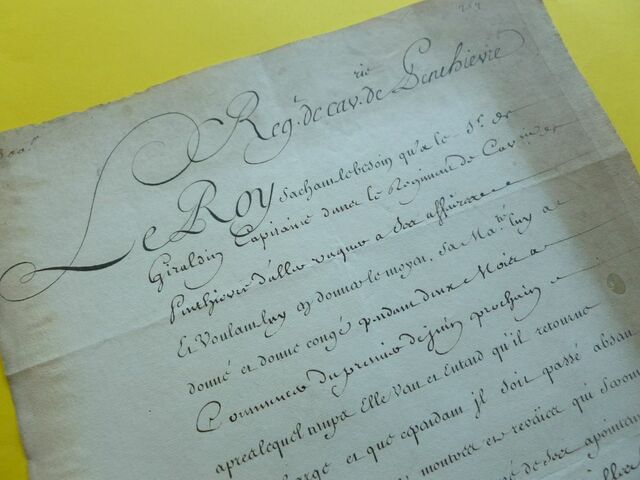 Regt. de cavrie de Penthievre
Le Roy Sachant le besoin qu'a le Sr. de
Giraldin Capitaine dans le Regiment de Cavrie de
Penthievre d'aller vaquer a Ses affaires
Et Voulant luy en donner le moyen, Sa Maté. luy a
donné et donne congé pendant deux Mois a
Commencer du premier de juin prochain
apres lequel temps Elle Veut et Entend qu'il retourne
charge et que cependant jl Soit passé absent
montres et reveües qui Seront
de Ses appointem